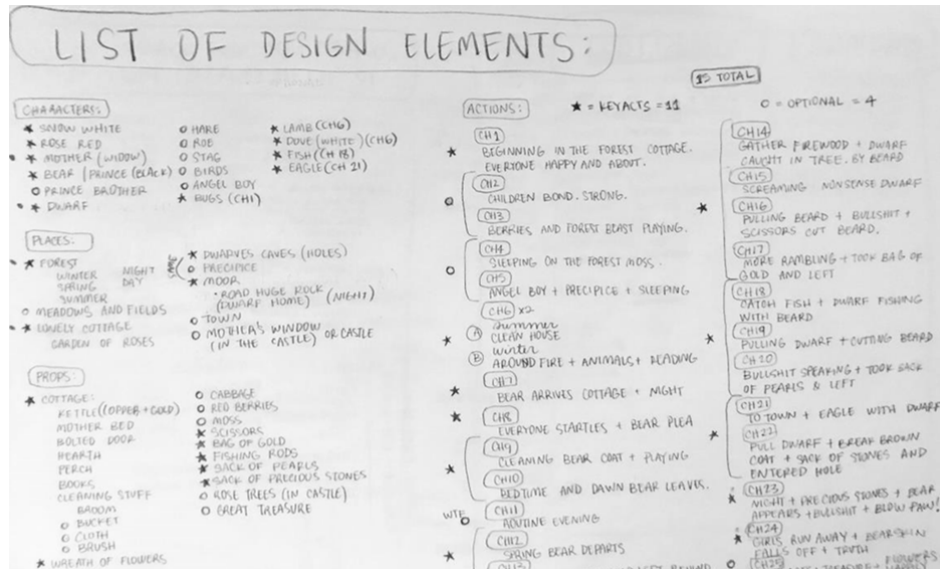 LIST OF DESIGN ELEMENTS:
15 TOTAL
CHARACTERS:
★ SNOW WHITE
★ ROSE RED
★ MOTHER (WIDOW)
★ BEAR (PRINCE (BLACK)
O PRINCE BROTHER
★ DWARF
O HARE
O ROE
O STAG
O BIRDS
O ANGEL BOY
★ BUGS (CH1)
★ LAMB (CH6)
★ DOVE (WHITE) (CH6)
★ FISH (CH 18)
★ EAGLE (CH 21)
PLACES:
★ FOREST
WINTER NIGHT
SPRING DAY
SUMMER
O MEADOWS AND FIELDS
★ LONELY COTTAGE
GARDEN OF ROSES
★ DWARVES CAVES (HOLES)
O PRECIPICE
★ MOOR
• ROAD HUGE ROCK
(DWARF HOME) (NIGHT)
O TOWN
O MOTHER'S WINDOW OR CASTLE
(IN THE CASTLE)
PROPS:
★ COTTAGE:
KETTLE (COPPER + GOLD)
MOTHER BED
BOLTED DOOR
HEARTH
PERCH
BOOKS
CLEANING STUFF
BROOM
O BUCKET
O CLOTH
O BRUSH
★ WREATH OF FLOWERS
O CABBAGE
O RED BERRIES
O MOSS
★ SCISSORS
★ BAG OF GOLD
★ FISHING RODS
★ SACK OF PEARLS
★ SACK OF PRECIOUS STONES
O ROSE TREES (IN CASTLE)
O GREAT TREASURE
ACTIONS: ★ = KEY ACTS = 11 O = OPTIONAL = 4
CH1
★ BEGINNING IN THE FOREST COTTAGE.
EVERYONE HAPPY AND ABOUT.
CH2
O CHILDREN BOND. STRONG.
CH3
BERRIES AND FOREST BEAST PLAYING.
CH4
O SLEEPING ON THE FOREST MOSS.
CH5
ANGEL BOY + PRECIPICE + SLEEPING
CH6 x2
A summer
★ CLEAN HOUSE
B winter
AROUND FIRE + ANIMALS + READING
CH7
★ BEAR ARRIVES COTTAGE + NIGHT
CH8
★ EVERYONE STARTLES + BEAR PLEA
CH9
★ CLEANING BEAR COAT + PLAYING
CH10
BEDTIME AND DAWN BEAR LEAVES.
WTF CH11
O ROUTINE EVENING
CH12
★ SPRING BEAR DEPARTS
CH13
BEHIND
CH14
GATHER FIREWOOD + DWARF
CAUGHT IN TREE. BY BEARD
CH15
SCREAMING NONSENSE DWARF
★ CH16
PULLING BEARD + BULLSHIT +
SCISSORS CUT BEARD.
CH17
MORE RAMBLING + TOOK BAG OF
GOLD AND LEFT
CH18
CATCH FISH + DWARF FISHING
WITH BEARD
★ CH19
PULLING DWARF + CUTTING BEARD
CH20
BULLSHIT SPEAKING + TOOK SACK
OF PEARLS & LEFT
CH21
TO TOWN + EAGLE WITH DWARF
★ CH22
PULL DWARF + BREAK BROWN
COAT + SACK OF STONES AND
ENTERED HOLE
CH23
★ NIGHT + PRECIOUS STONES + BEAR
APPEARS + BULLSHIT + BLOW PAW!
CH24
★ GIRLS RUN AWAY + BEARSKIN
FALLS OFF + TRUTH
O CH25 FLOWERS